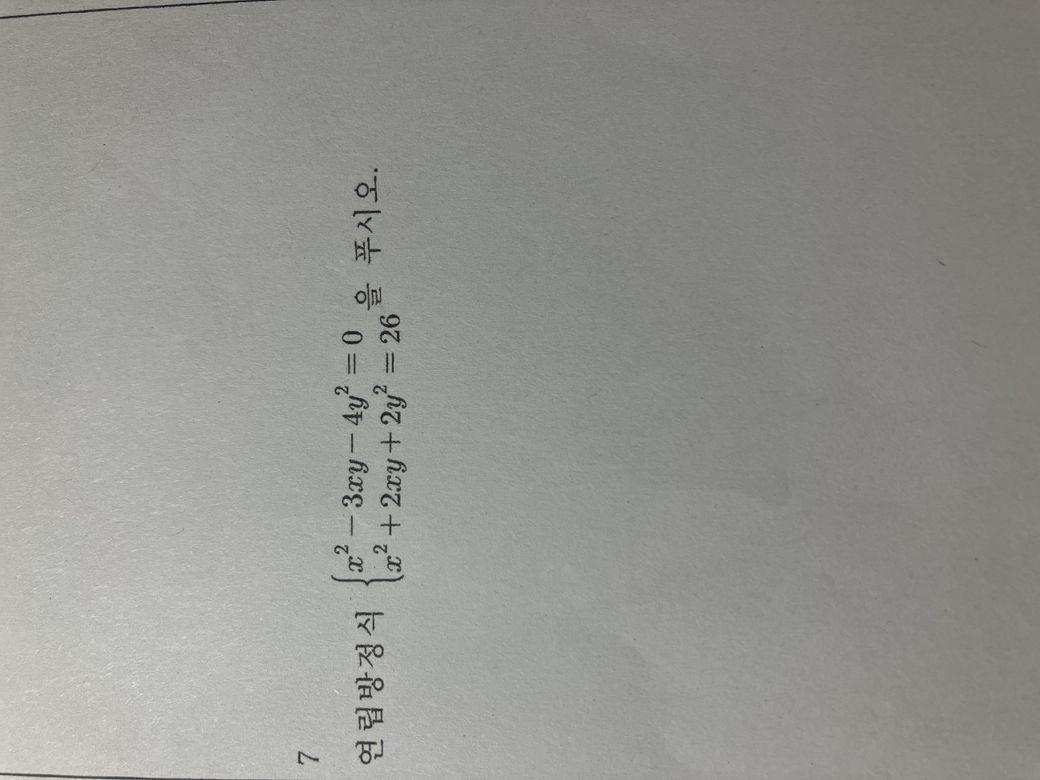 7
연립방정식 { x² − 3xy − 4y² = 0
x² + 2xy + 2y² = 26 을 푸시오.